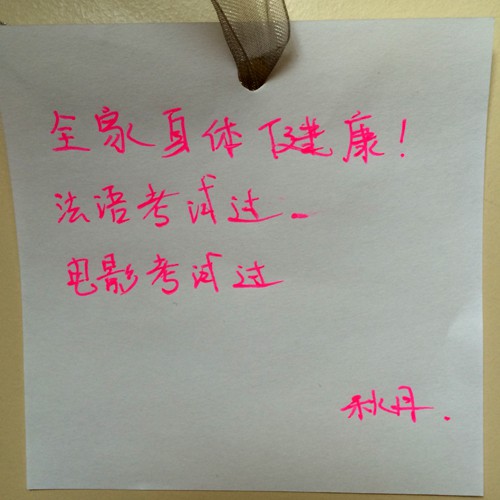 全家身体健康!
法语考试过.
电影考试过
秋丹.